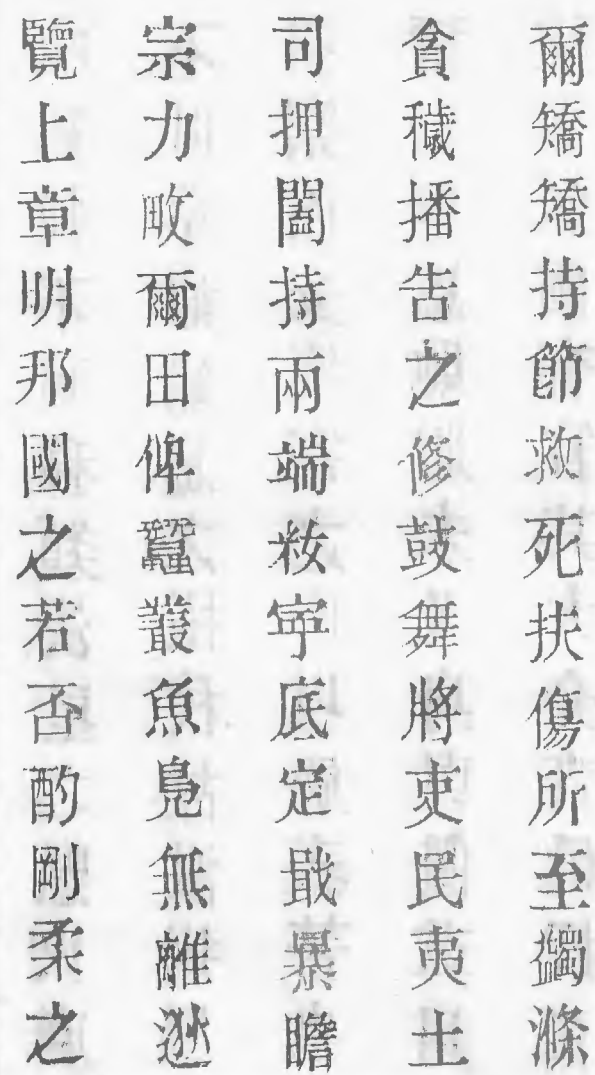 爾矯矯持節救死扶傷所至蠲滌
貪穢播告之修鼓舞將吏民夷土
司押闔持兩端敉寧底定戢暴瞻
宗力畋爾田俾蠶叢魚鳧無離逖
覽上章明邦國之若否酌剛柔之